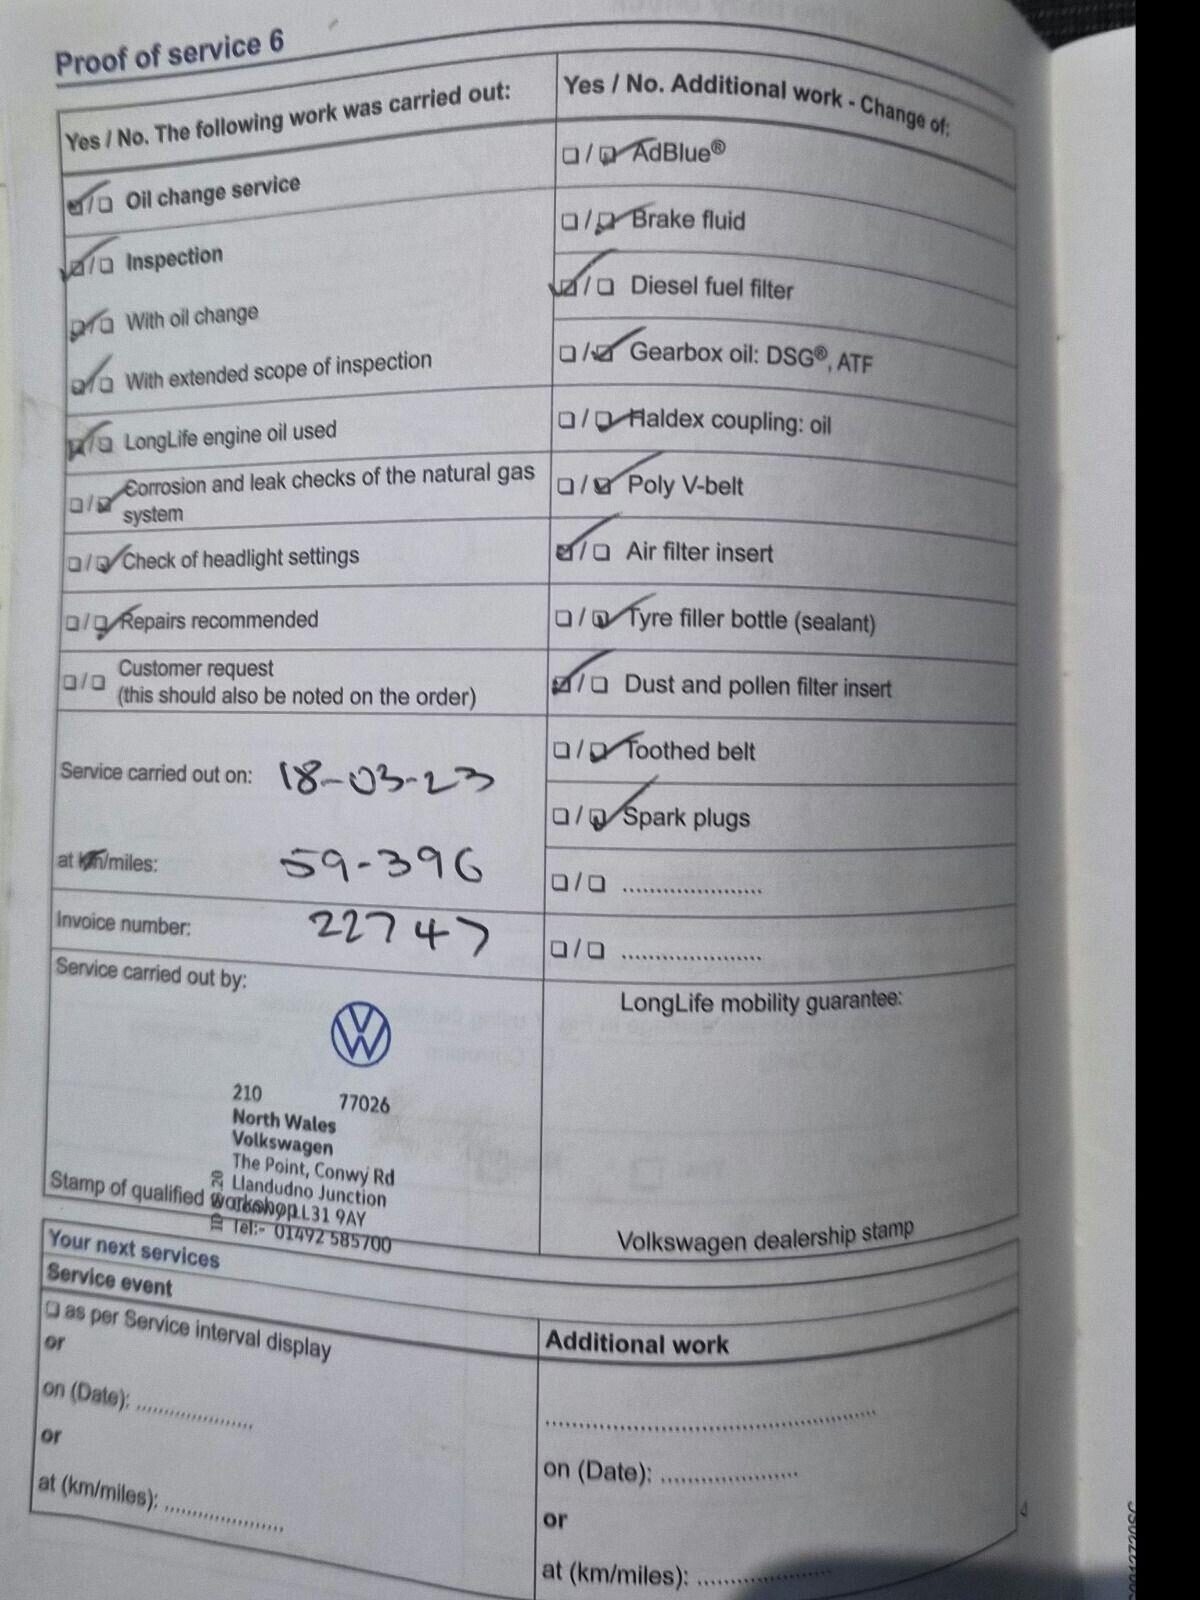 Proof of service 6
Yes / No. The following work was carried out:
Oil change service
Inspection
With oil change
With extended scope of inspection
LongLife engine oil used
Corrosion and leak checks of the natural gas
system
Check of headlight settings
Repairs recommended
Customer request
(this should also be noted on the order)
Service carried out on: 18-03-23
at km/miles: 59-396
Invoice number: 22747
Service carried out by:
210 77026
North Wales
Volkswagen
The Point, Conwy Rd
Llandudno Junction
LL31 9AY
Tel:- 01492 585700
Stamp of qualified workshop
Yes / No. Additional work - Change of:
AdBlue®
Brake fluid
Diesel fuel filter
Gearbox oil: DSG®, ATF
Haldex coupling: oil
Poly V-belt
Air filter insert
Tyre filler bottle (sealant)
Dust and pollen filter insert
Toothed belt
Spark plugs
.....................
.....................
LongLife mobility guarantee:
Volkswagen dealership stamp
Your next services
Service event
as per Service interval display
or
on (Date): ....................
or
at (km/miles): ....................
Additional work
..................................................
on (Date): .....................
or
at (km/miles): .....................